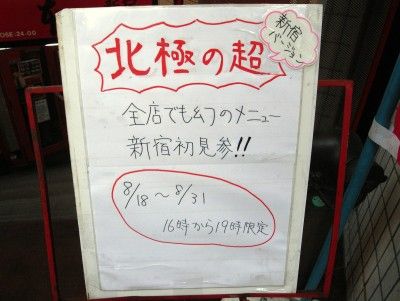 OSE:24:00
北極の超
新宿
バージョン
全店でも幻のメニュー
新宿初見参!!
8/18〜8/31
16時から19時限定